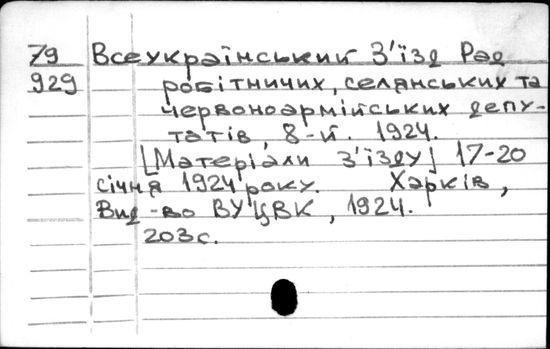 79 Всеукраїнський З'їзд Рад
929 робітничих, селянських та
червоноармійських депу-
татів, 8-й. 1924.
[Матеріали з'їзду] 17-20
січня 1924 року. Харків,
Вид-во ВУЦВК, 1924.
203с.